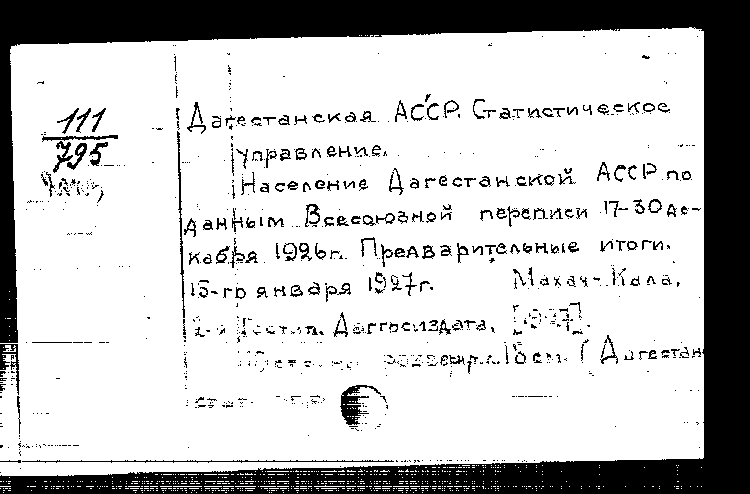 111
795
Дагестанская АССР. Статистическое
управление.
Население Дагестанской АССР по
данным Всесоюзной переписи 17-30 де-
кабря 1926г. Предварительные итоги.
15-го января 1927г. Махач-Кала,
2-я Гостип. Даггосиздата, [1927].
18 см. (Дагестан